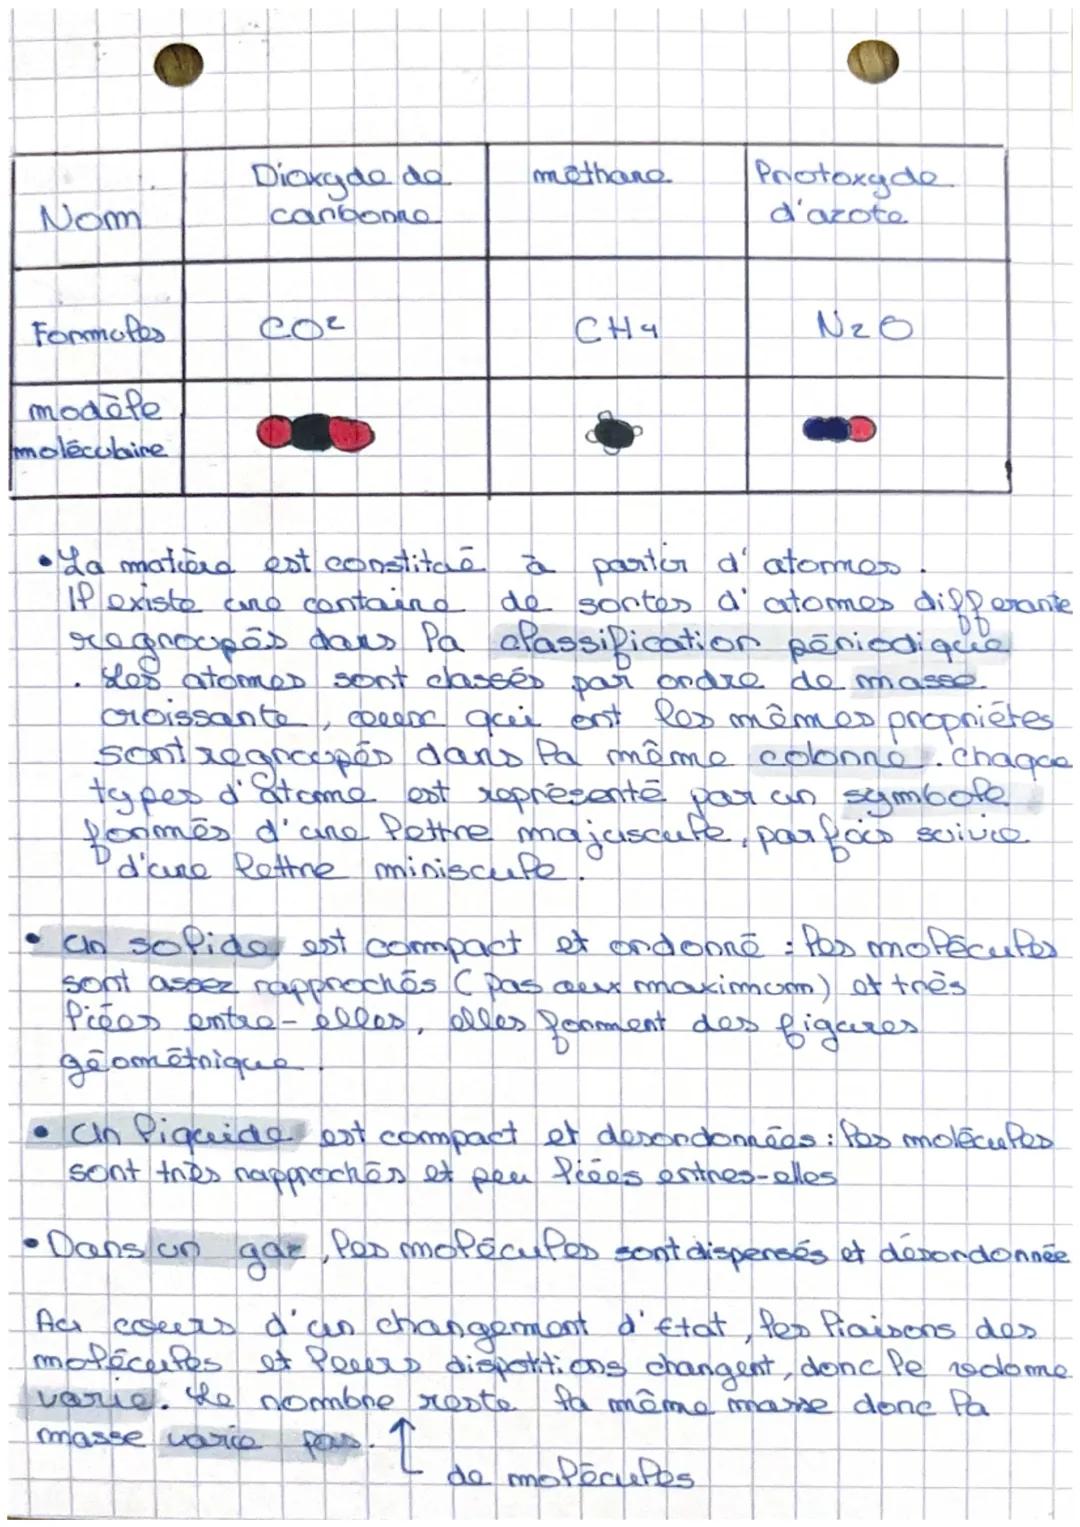 Nom
Dioxyde de
carbonne
méthane
Protoxyde
d'azote
Formules
CO²
CH4
N2O
modèle
moléculaire
• La matière est constitué à partir d'atomes.
Il existe une centaine de sortes d'atomes différante
regroupés dans la classification périodique
. Les atomes sont classés par ordre de masse
croissante, ceux qui ont les mêmes propriétes
sont regroupés dans la même colonne. chaque
types d'atome est représenté par un symbole
formés d'une lettre majuscule, parfois suivie
d'une lettre miniscule.
• Un solide est compact et ordonné : les molécules
sont assez rapprochés (pas aux maximum) et très
liées entre-elles, elles forment des figures
géométrique.
• Un liquide est compact et desordonnées : les molécules
sont très rapprochés et peu liées entres-elles
• Dans un gaz, les molécules sont dispersés et désordonnée
Au cours d'un changement d'état, les liaisons des
molécules et leurs dispotitions changent, donc le volume
varie. Le nombre reste la même masse donc la
masse varie pas.
de molécules